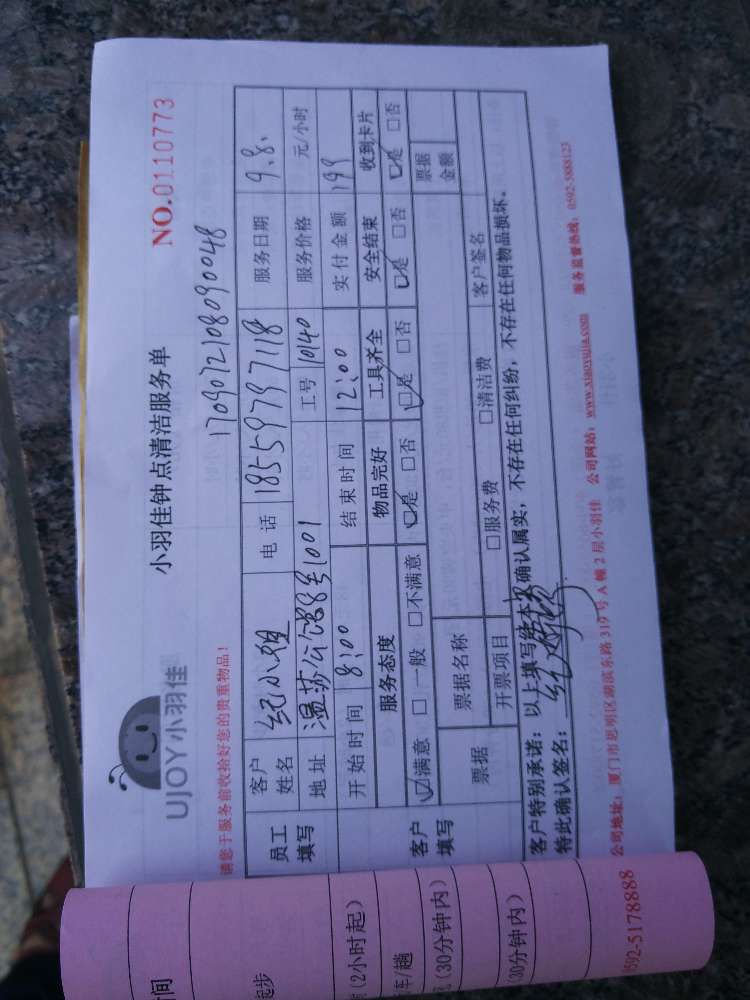 UJOY小羽佳
小羽佳钟点清洁服务单
NO.0110773
1709072108090048
请您于服务前收拾好您的贵重物品!
员工填写
客户姓名 纪小姐 电话 18559797118 服务日期 9.8.
地址 温莎公馆88号1001 工号 10140 服务价格 元/小时
开始时间 8:00 结束时间 12:00 实付金额 199
客户填写
服务态度 物品完好 工具齐全 安全结束 收到卡片
☑满意 □一般 □不满意 ☑是 □否 ☑是 □否 ☑是 □否 ☑是 □否
票据 票据名称 票据金额
开票项目 □服务费 □清洁费 客户签名
客户特别承诺:以上填写经本人确认属实,不存在任何纠纷,不存在任何物品损坏。
特此确认签名:
公司地址:厦门市思明区湖滨东路319号A幢2层小羽佳 公司网站:www.xiaoyujia.com 服务监督热线:0592-5888123
时间
起步
(2小时起)
车/趟
(30分钟内)
(30分钟内)
0592-5178888